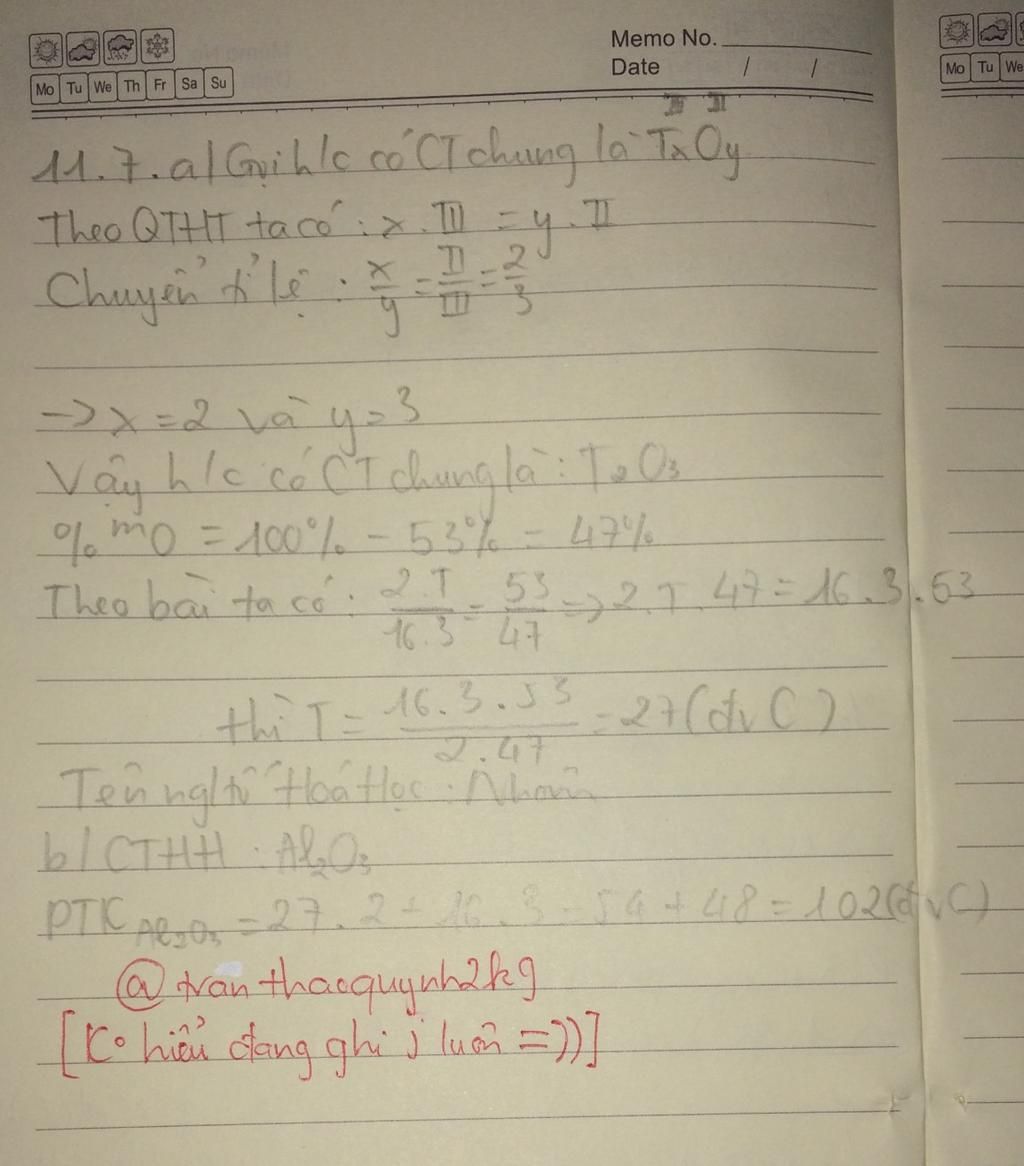 Memo No.
Date / /
Mo Tu We Th Fr Sa Su
Mo Tu We
III II
11.7.a/Gọi h/c có CT chung là TxOy
Theo QTHT ta có: x.III = y.II
Chuyển tỉ lệ: x/y = II/III = 2/3
-> x = 2 và y = 3
Vậy h/c có CT chung là: T2O3
% mO = 100% - 53% = 47%
Theo bài ta có: 2.T/16.3 = 53/47 => 2.T.47 = 16.3.53
thì T = 16.3.53/2.47 = 27 (đvC)
Tên ng/tố Hoá Học: Nhôm
b/ CTHH: Al2O3
PTK Al2O3 = 27.2 + 16.3 = 54 + 48 = 102 (đvC)
@tranthaoquynh2k9
[Ko hiểu đang ghi j luôn =))]